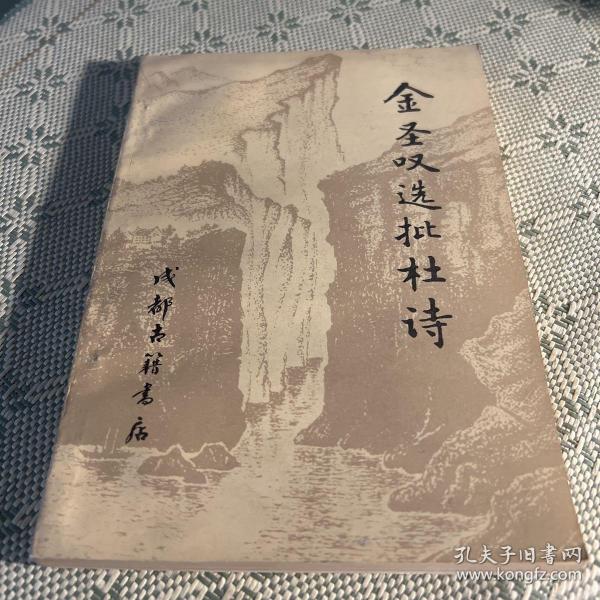 金圣叹选批杜诗
成都古籍书店
孔夫子旧书网
www.kongfz.com